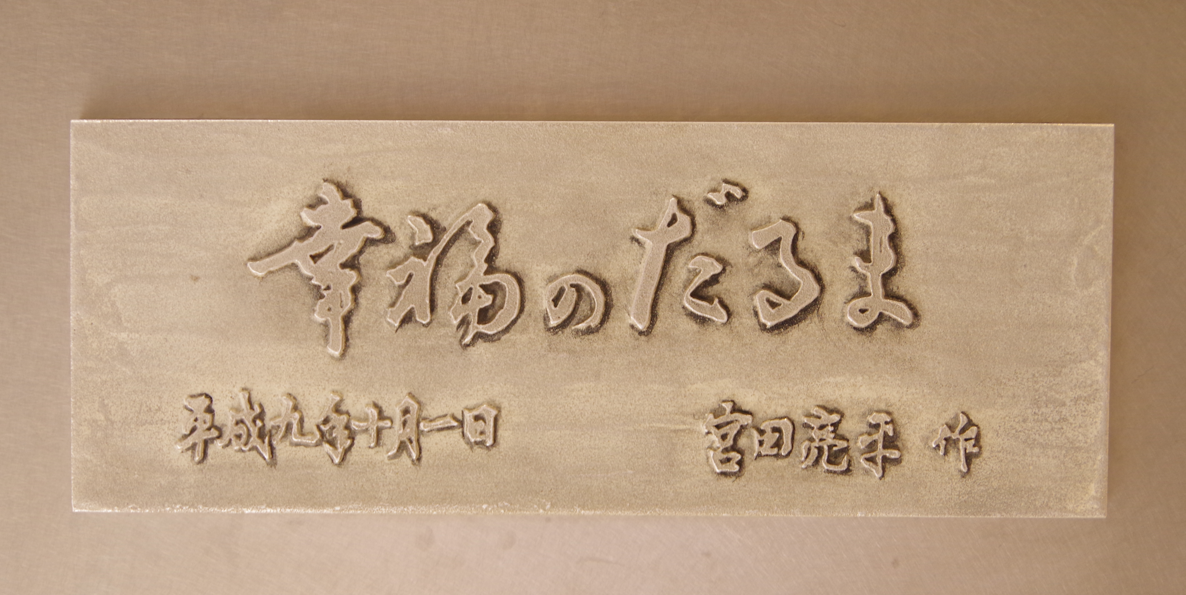 幸福のだるま
平成九年十月一日 宮田亮平 作